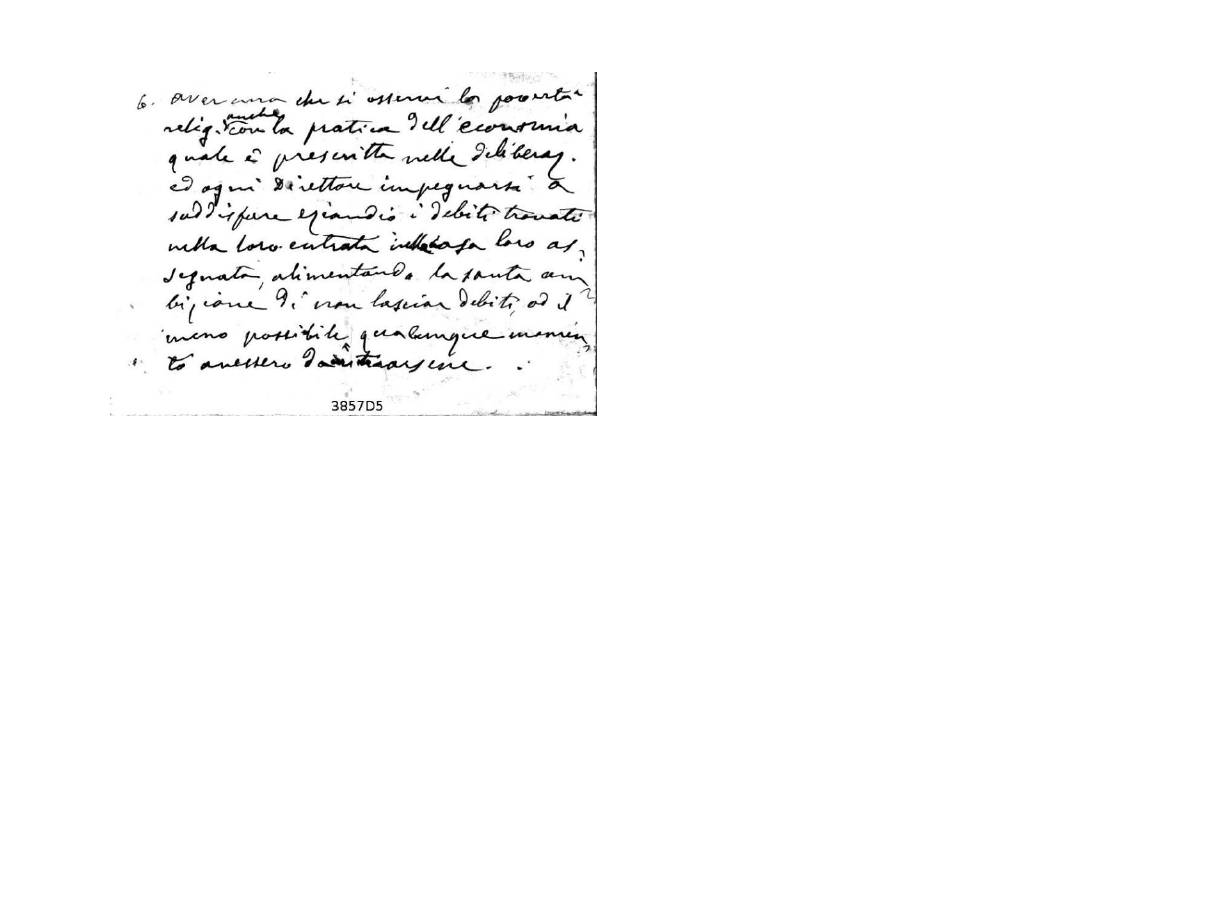 6. Aver cura che si osservi la povertà
relig. anche con la pratica dell'economia
quale è prescritta nelle deliberaz.
ed ogni Direttore impegnarsi a
soddisfare eziandio i debiti trovati
nella loro entrata nella casa loro as-
segnata, alimentando la santa am-
bizione di non lasciar debiti, od il
meno possibile qualunque momen-
to avessero da ritrarsene.
3857D5